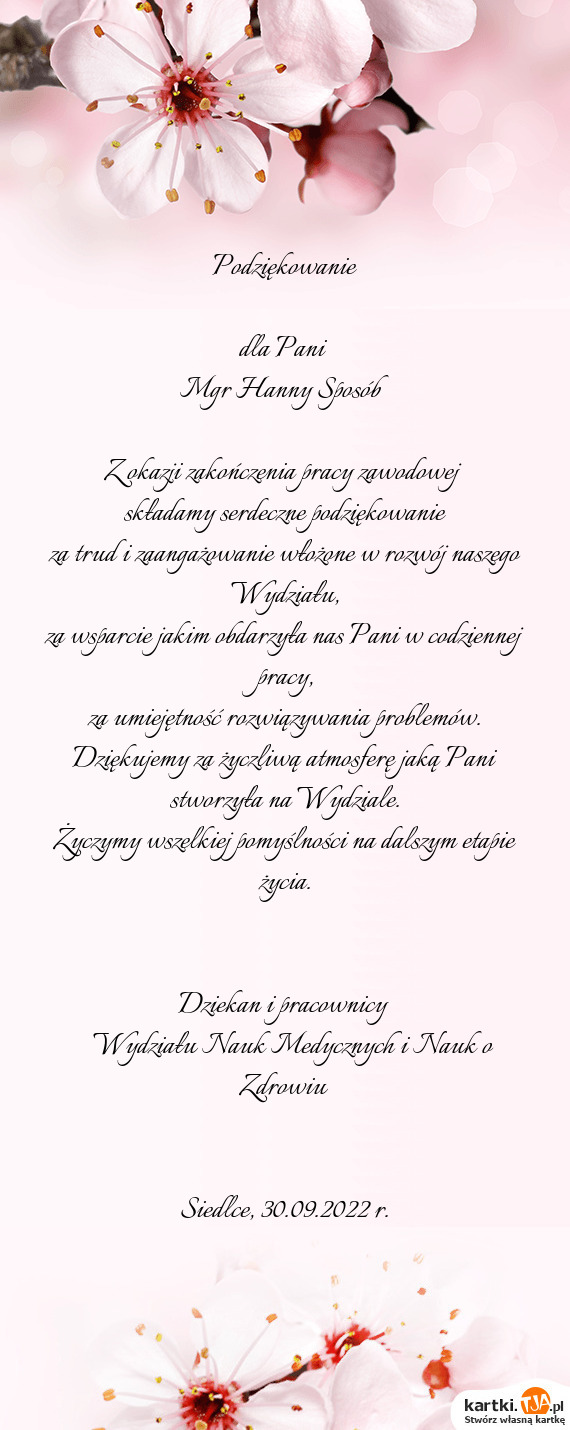 Podziękowanie
dla Pani
Mgr Hanny Sposób
Z okazji zakończenia pracy zawodowej
składamy serdeczne podziękowanie
za trud i zaangażowanie włożone w rozwój naszego
Wydziału,
za wsparcie jakim obdarzyła nas Pani w codziennej
pracy,
za umiejętność rozwiązywania problemów.
Dziękujemy za życzliwą atmosferę jaką Pani
stworzyła na Wydziale.
Życzymy wszelkiej pomyślności na dalszym etapie
życia.
Dziekan i pracownicy
Wydziału Nauk Medycznych i Nauk o
Zdrowiu
Siedlce, 30.09.2022 r.
kartki.TJA.pl
Stwórz własną kartkę